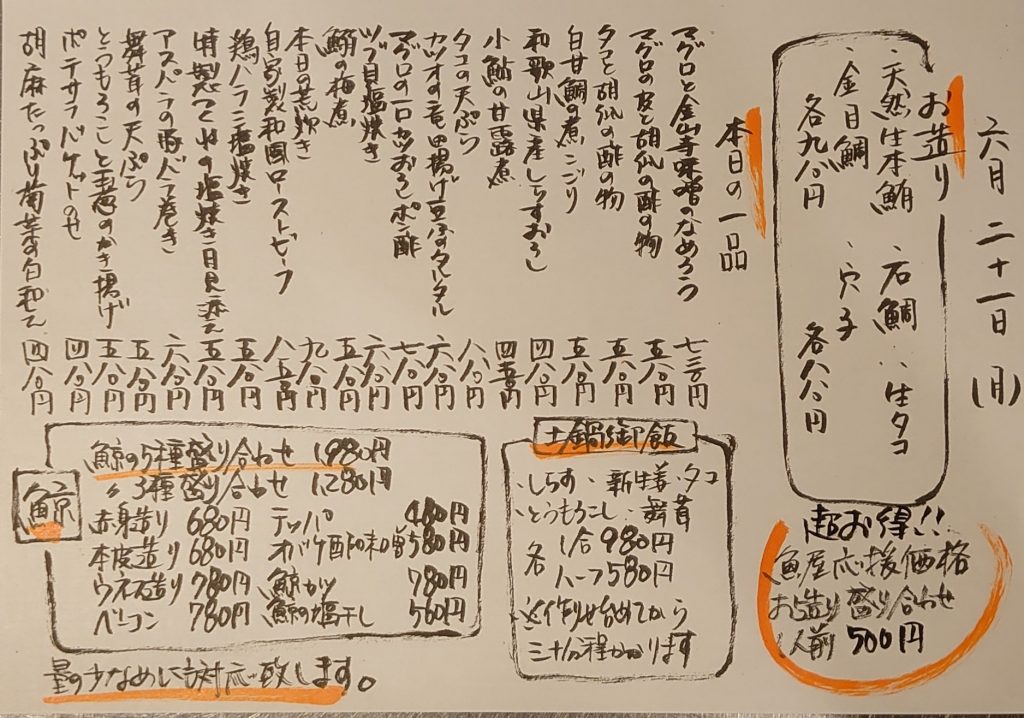 六月二十一日(月)
お造り
・天然生本鮪 ・石鯛 ・生タコ
・金目鯛 ・穴子
各九八〇円 各八八〇円
超お得!!
魚屋応援価格
お造り盛り合わせ
1人前 500円
本日の一品
マグロと金山寺味噌のなめろう 七三〇円
マグロの皮と胡瓜の酢の物 五八〇円
タコと胡瓜の酢の物 五八〇円
白甘鯛の煮こごり 五八〇円
和歌山県産しらすおろし 四八〇円
小鮎の甘露煮 四五〇円
タコの天ぷら 八八〇円
カツオの竜田揚げ豆ふのタルタル 六八〇円
マグロの一口カツおろしポン酢 七八〇円
ツブ貝塩焼き 六八〇円
鮪の梅煮 五八〇円
本日の荒炊き 九八〇円
自家製和風ローストビーフ 八五〇円
鶏ハラミ塩焼き 五八〇円
特製つくねの塩焼き月見添え 五八〇円
アスパラの豚バラ巻き 六八〇円
舞茸の天ぷら 五八〇円
とうもろこしと玉葱のかき揚げ 五八〇円
ポテサラバゲットのせ 四八〇円
胡麻たっぷり菊菜の白和え 四八〇円
土鍋御飯
・しらす ・新生姜 ・タコ
・とうもろこし ・舞茸
各 1合 980円
ハーフ 580円
※作り始めてから
三十分程かかります
鯨
鯨の5種盛り合わせ 1,980円
〃 3種盛り合わせ 1,280円
赤身造り 680円 テッパ 480円
本皮造り 680円 オバケ酢味噌 580円
ウネス造り 780円 鯨カツ 780円
ベーコン 780円 鯨の塩干し 560円
量の少なめにも対応致します。